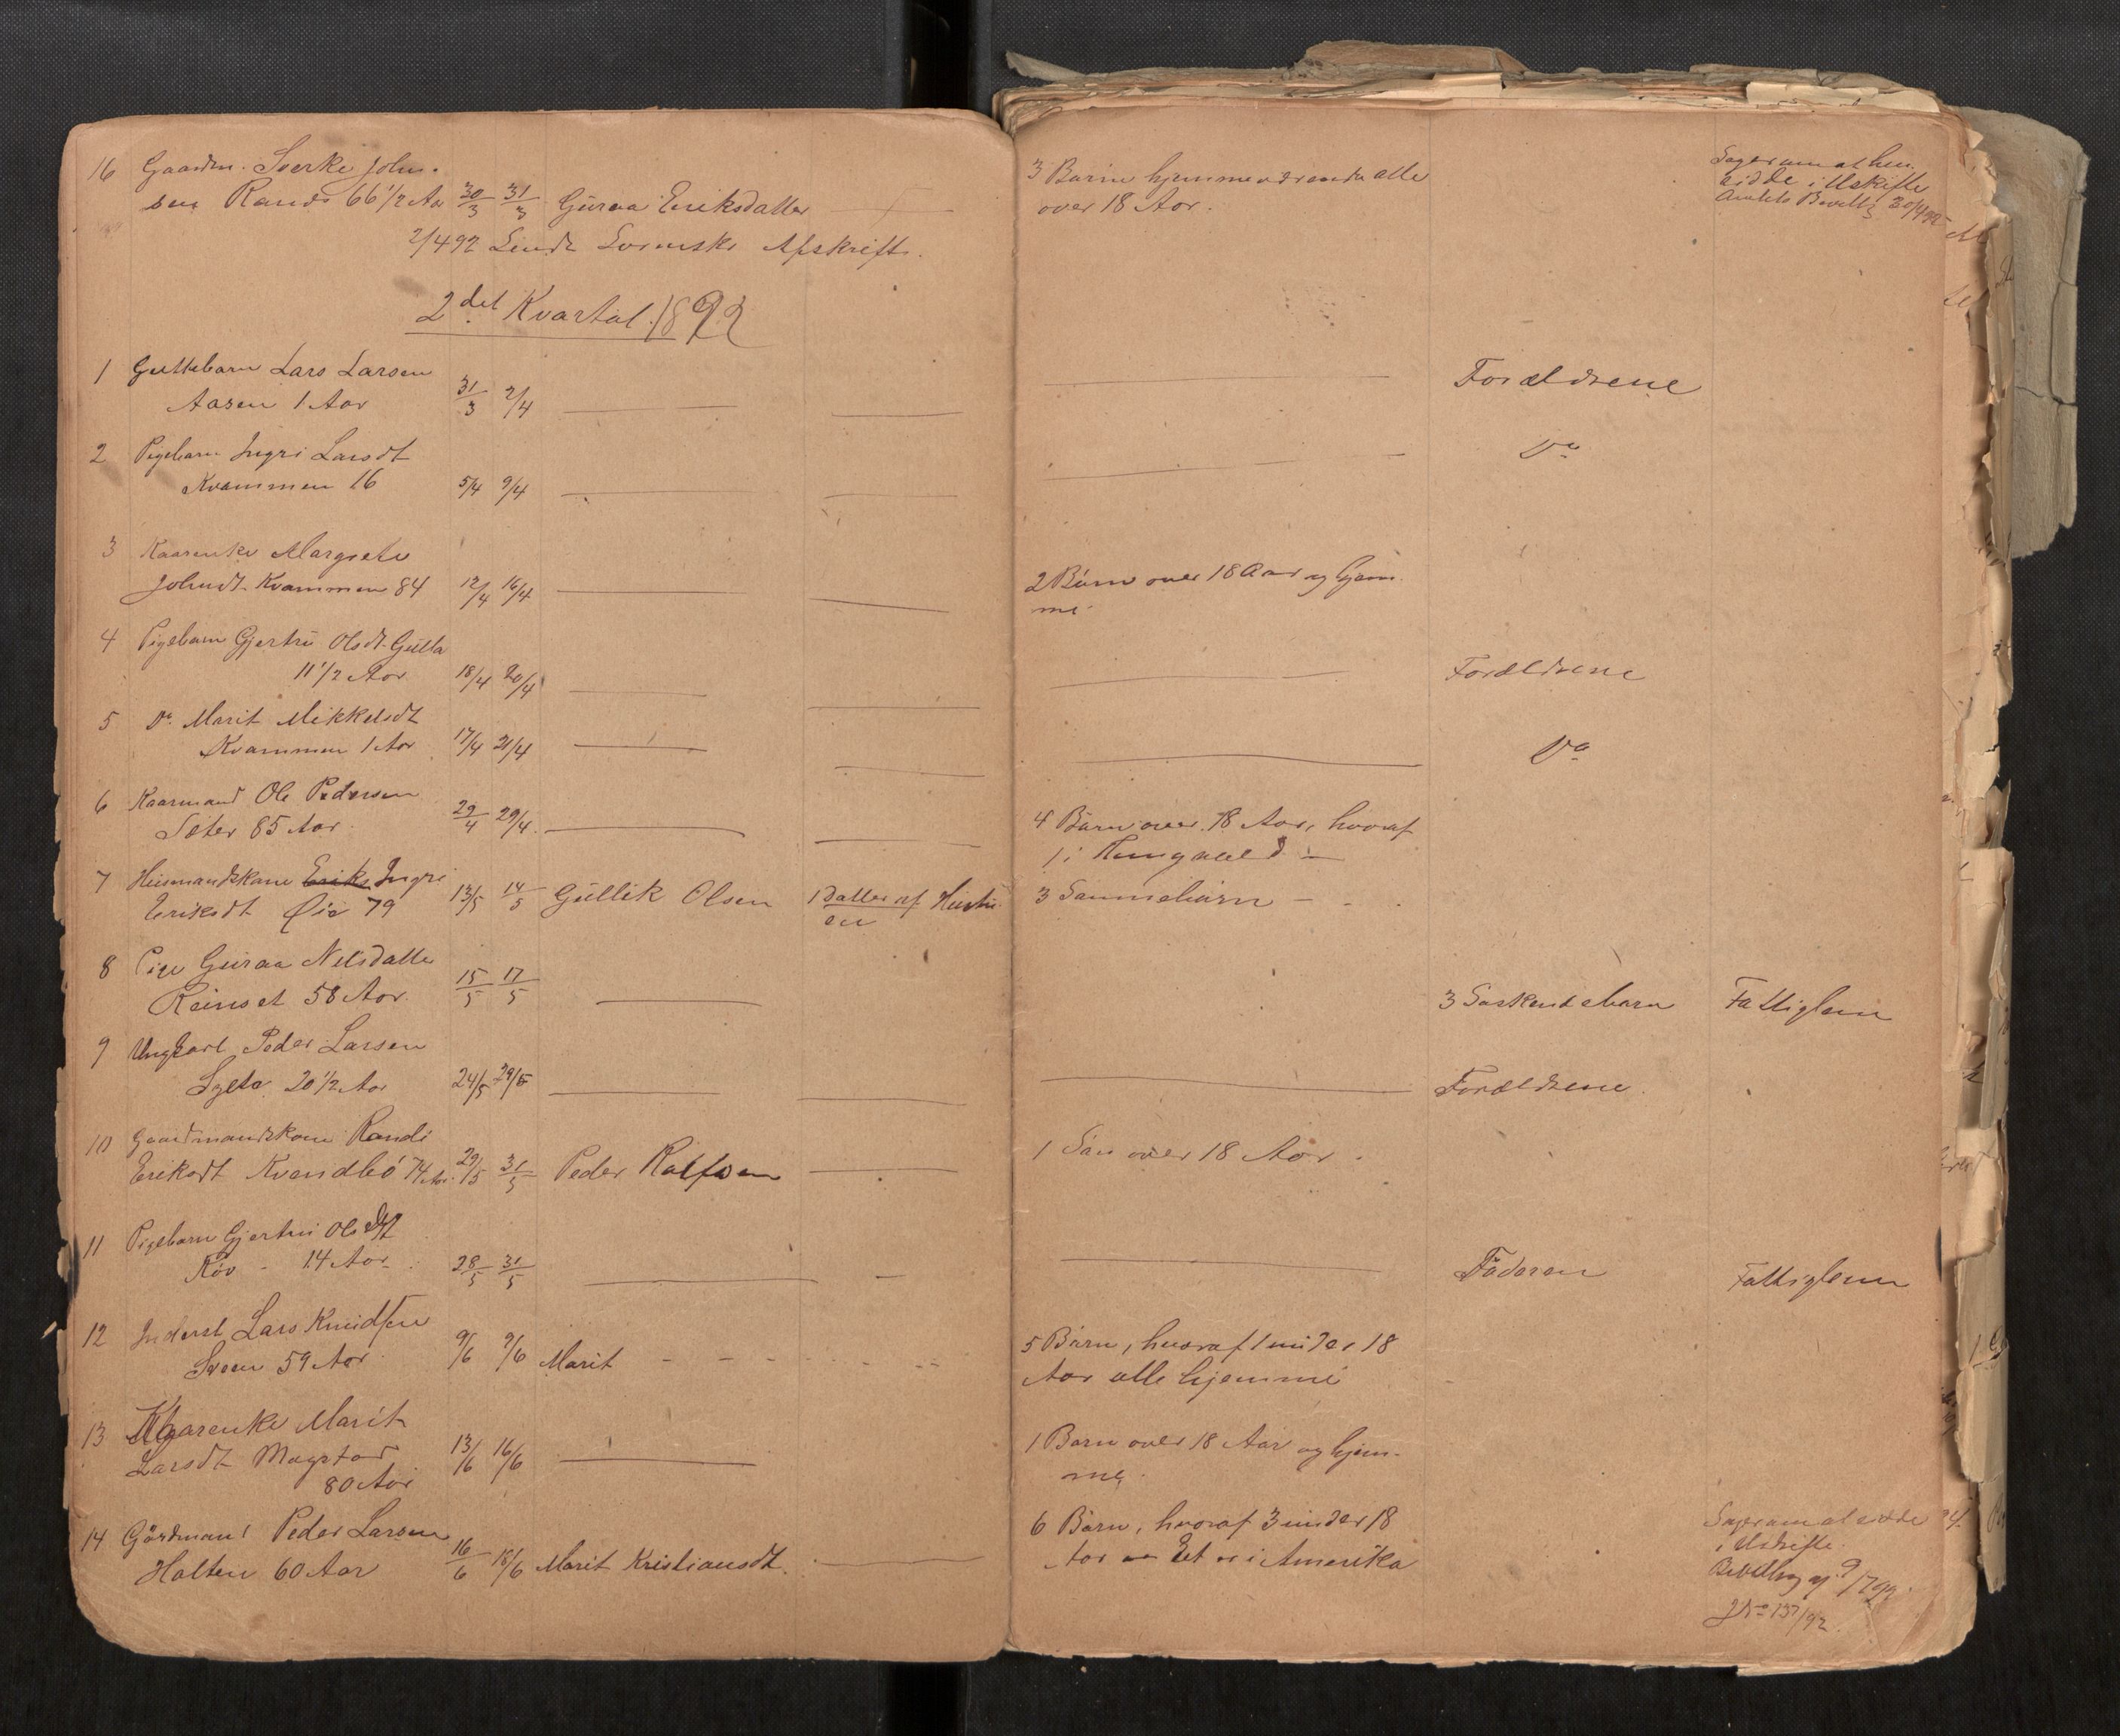 16 Gaardm. Sverke John-
sen Rands 66 1/2 Aar 30/3 31/3 Guraa Eriksdatter
2/4 92 Sendt Sorenskr Afskrift.
2det Kvartal 1892
1 Guttebarn Lars Larsen
Aasen 1 Aar 31/3 2/4
2 Pigebarn Ingri Larsdt
Kvammen 16 5/4 9/4
3 Kaarenke Margrete
Johndt Kvammen 84 12/4 16/4
4 Pigebarn Gjertru Olsdt Gulla
11 1/2 Aar 18/4 20/4
5 Do Marit Mikkelsdt
Kvammen 1 Aar 17/4 21/4
6 Kaarmand Ole Pedersen
Sæter 85 Aar 22/4 29/4
7 Husmandskone Eriks Ingri
Eriksdt Øie 79 13/5 14/5 Gullik Olsen 1 Datter af Hustru-
en
8 Pige Guraa Nelsdatter
Reinset 58 Aar. 15/5 17/5
9 Ungkarl Peder Larsen
20 1/2 Aar 24/5 29/5
10 Gaardmandskone Randi
Eriksdt Kvendbö 74 Aar 29/5 31/5 Peder Rolfsen
11 Pigebarn Gjertru Olsdt
Röv - 14 Aar. 28/5 31/5
12 Inderst Lars Knudsen
Sveen 59 Aar 9/6 9/6 Marit
13 Kaarenke Marit
Larsdt Mogstad 13/6 16/6
80 Aar
14 Gårdmand Peder Larsen
Halten 60 Aar 16/6 18/6 Marit Kristiansdt.
3 Børn hjemmeværende alle
over 18 Aar.
Søger om at hen-
sidde i Uskifte
Amtets Bevillg 30/4 92
Forældrene
Do
2 Børn over 18 Aar og hjem-
me.
Forældrene
Do
4 Børn over 18 Aar, hvoraf
1 i
3 Sammebørn
3 Søskendebarn Fattiglem
Forældrene
1 Søn over 18 Aar.
Faderen Fattiglem
5 Børn, hvoraf 1 under 18
Aar alle hjemme
1 Barn over 18 Aar og hjem-
me.
6 Børn, hvoraf 3 under 18
Aar Et er i Amerika
Søger om at sidde
i Uskifte.
Bevillng af 9/7 92.
J No 137/92.